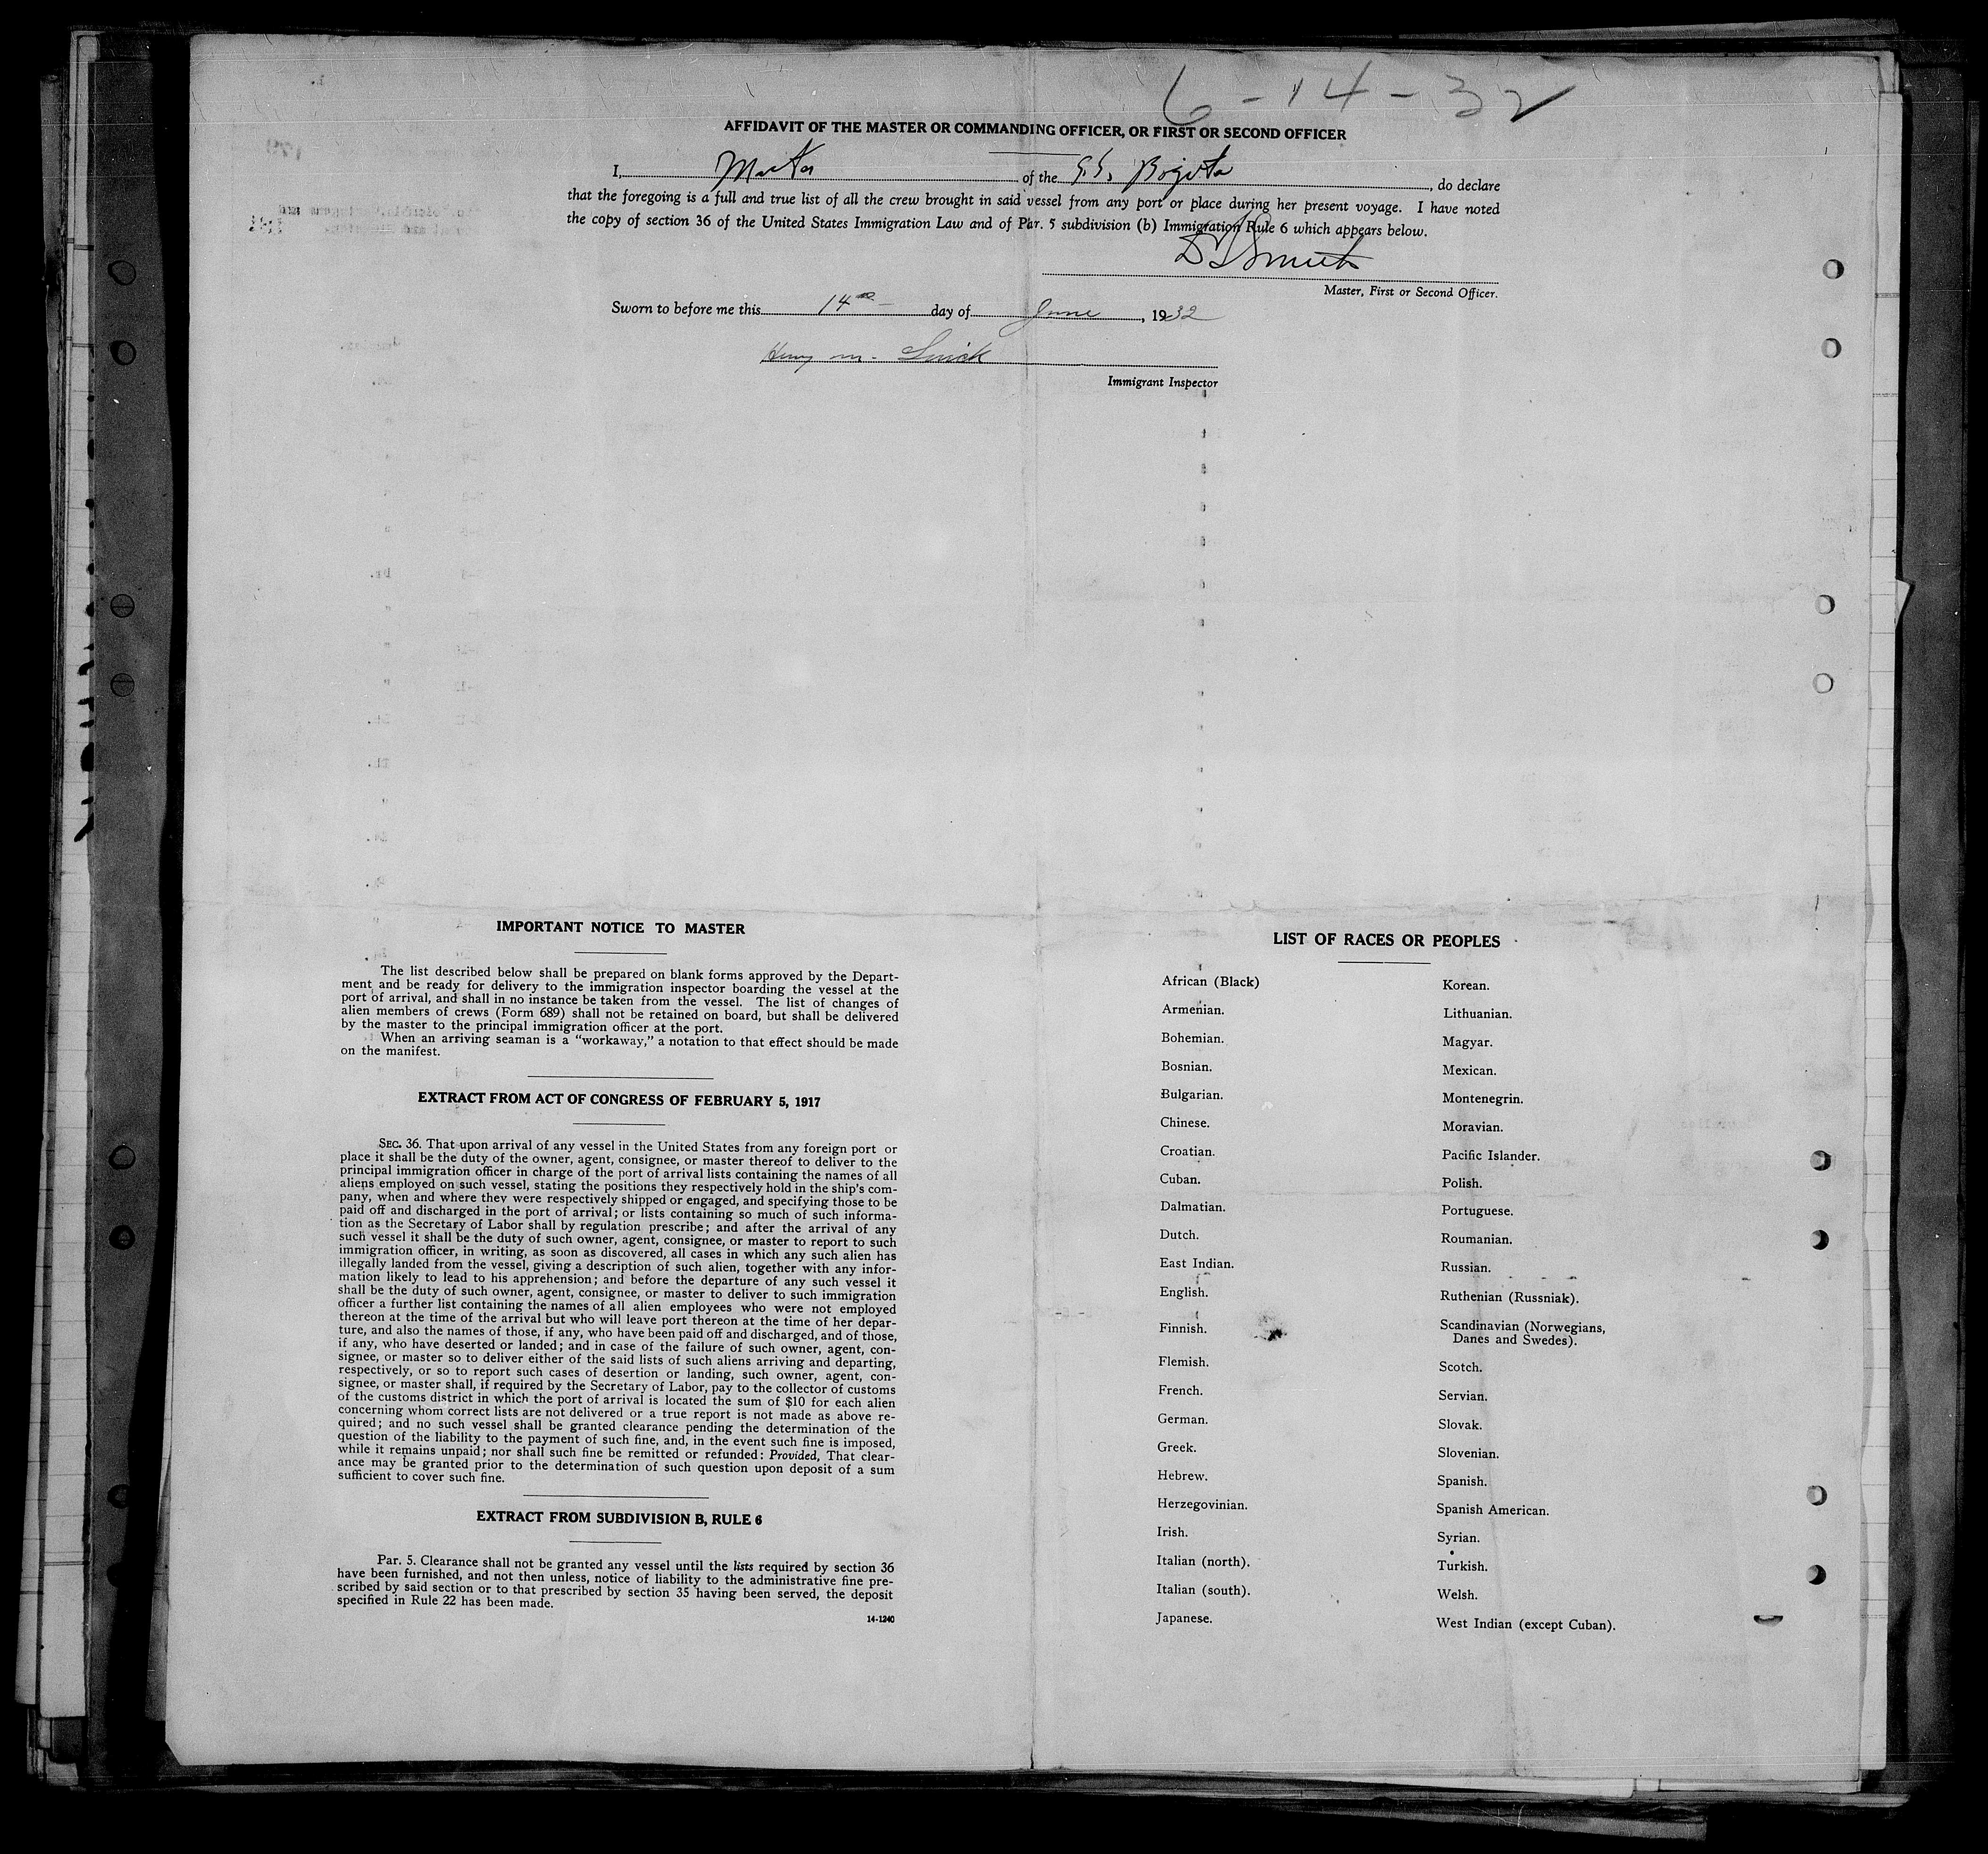 6-14-32
AFFIDAVIT OF THE MASTER OR COMMANDING OFFICER, OR FIRST OR SECOND OFFICER
I, Master of the S.S. Bogota, do declare
that the foregoing is a full and true list of all the crew brought in said vessel from any port or place during her present voyage. I have noted
the copy of section 36 of the United States Immigration Law and of Par. 5 subdivision (b) Immigration Rule 6 which appears below.
Smith
Master, First or Second Officer.
Sworn to before me this 14 day of June, 1932
Henry M.
Immigrant Inspector
IMPORTANT NOTICE TO MASTER
The list described below shall be prepared on blank forms approved by the Depart-
ment and be ready for delivery to the immigration inspector boarding the vessel at the
port of arrival, and shall in no instance be taken from the vessel. The list of changes of
alien members of crews (Form 689) shall not be retained on board, but shall be delivered
by the master to the principal immigration officer at the port.
When an arriving seaman is a “workaway,” a notation to that effect should be made
on the manifest.
EXTRACT FROM ACT OF CONGRESS OF FEBRUARY 5, 1917
SEC. 36. That upon arrival of any vessel in the United States from any foreign port or
place it shall be the duty of the owner, agent, consignee, or master thereof to deliver to the
principal immigration officer in charge of the port of arrival lists containing the names of all
aliens employed on such vessel, stating the positions they respectively hold in the ship's com-
pany, when and where they were respectively shipped or engaged, and specifying those to be
paid off and discharged in the port of arrival; or lists containing so much of such informa-
tion as the Secretary of Labor shall by regulation prescribe; and after the arrival of any
such vessel it shall be the duty of such owner, agent, consignee, or master to report to such
immigration officer, in writing, as soon as discovered, all cases in which any such alien has
illegally landed from the vessel, giving a description of such alien, together with any infor-
mation likely to lead to his apprehension; and before the departure of any such vessel it
shall be the duty of such owner, agent, consignee, or master to deliver to such immigration
officer a further list containing the names of all alien employees who were not employed
thereon at the time of the arrival but who will leave port thereon at the time of her depar-
ture, and also the names of those, if any, who have been paid off and discharged, and of those,
if any, who have deserted or landed; and in case of the failure of such owner, agent, con-
signee, or master so to deliver either of the said lists of such aliens arriving and departing,
respectively, or so to report such cases of desertion or landing, such owner, agent, con-
signee, or master shall, if required by the Secretary of Labor, pay to the collector of customs
of the customs district in which the port of arrival is located the sum of $10 for each alien
concerning whom correct lists are not delivered or a true report is not made as above re-
quired; and no such vessel shall be granted clearance pending the determination of the
question of the liability to the payment of such fine, and, in the event such fine is imposed,
while it remains unpaid; nor shall such fine be remitted or refunded: Provided, That clear-
ance may be granted prior to the determination of such question upon deposit of a sum
sufficient to cover such fine.
EXTRACT FROM SUBDIVISION B, RULE 6
Par. 5. Clearance shall not be granted any vessel until the lists required by section 36
have been furnished, and not then unless, notice of liability to the administrative fine pre-
scribed by said section or to that prescribed by section 35 having been served, the deposit
specified in Rule 22 has been made.
14-1240
LIST OF RACES OR PEOPLES
African (Black)
Armenian.
Bohemian.
Bosnian.
Bulgarian.
Chinese.
Croatian.
Cuban.
Dalmatian.
Dutch.
East Indian.
English.
Finnish.
Flemish.
French.
German.
Greek.
Hebrew.
Herzegovinian.
Irish.
Italian (north).
Italian (south).
Japanese.
Korean.
Lithuanian.
Magyar.
Mexican.
Montenegrin.
Moravian.
Pacific Islander.
Polish.
Portuguese.
Roumanian.
Russian.
Ruthenian (Russniak).
Scandinavian (Norwegians,
Danes and Swedes).
Scotch.
Servian.
Slovak.
Slovenian.
Spanish.
Spanish American.
Syrian.
Turkish.
Welsh.
West Indian (except Cuban).